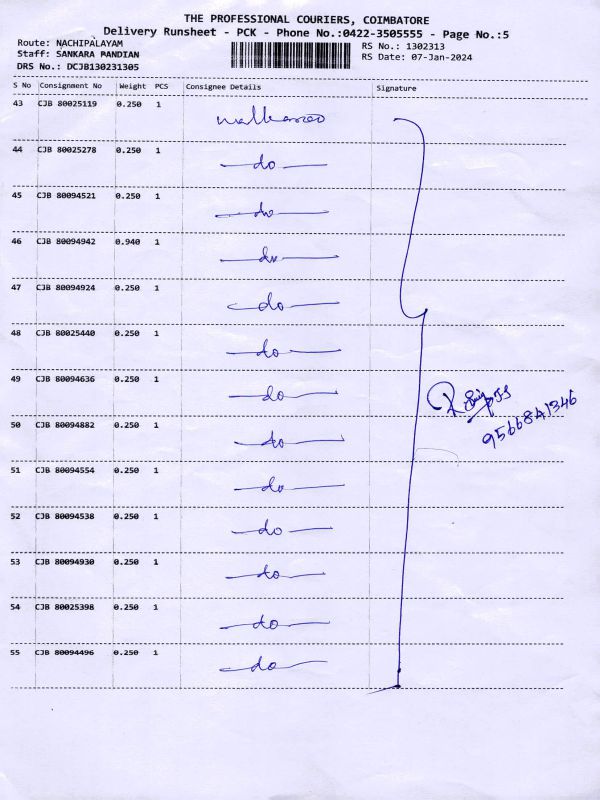 THE PROFESSIONAL COURIERS, COIMBATORE
Delivery Runsheet - PCK - Phone No.:0422-3505555 - Page No.:5
Route: NACHIPALAYAM
Staff: SANKARA PANDIAN
DRS No.: DCJB130231305
RS No.: 1302313
RS Date: 07-Jan-2024
S No Consignment No Weight PCS Consignee Details Signature
43 CJB 80025119 0.250 1
44 CJB 80025278 0.250 1 do
45 CJB 80094521 0.250 1 do
46 CJB 80094942 0.940 1 do
47 CJB 80094924 0.250 1 do
48 CJB 80025440 0.250 1 do
49 CJB 80094636 0.250 1 do
50 CJB 80094882 0.250 1 do
51 CJB 80094554 0.250 1 do
52 CJB 80094538 0.250 1 do
53 CJB 80094930 0.250 1 do
54 CJB 80025398 0.250 1 do
55 CJB 80094496 0.250 1 do
9566841346